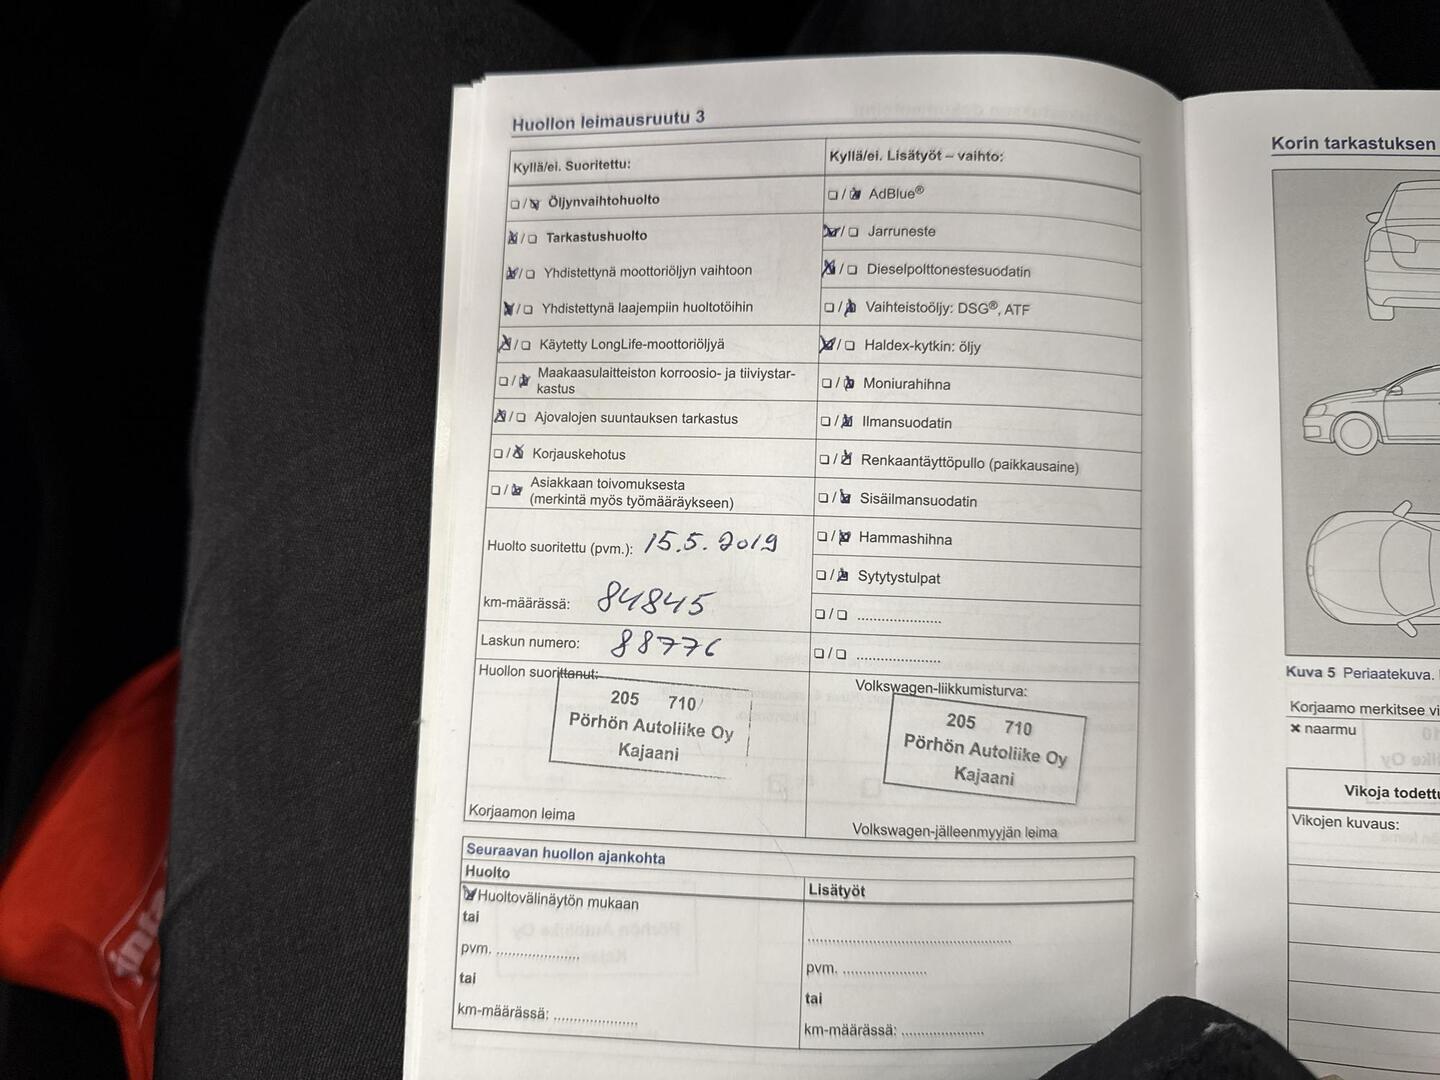 Huollon leimausruutu 3
Kyllä/ei. Suoritettu:
☐/☒ Öljynvaihtohuolto
☒/☐ Tarkastushuolto
☒/☐ Yhdistettynä moottoriöljyn vaihtoon
☒/☐ Yhdistettynä laajempiin huoltotöihin
☒/☐ Käytetty LongLife-moottoriöljyä
☐/☒ Maakaasulaitteiston korroosio- ja tiiviystar-
kastus
☒/☐ Ajovalojen suuntauksen tarkastus
☐/☒ Korjauskehotus
☐/☒ Asiakkaan toivomuksesta
(merkintä myös työmääräykseen)
Huolto suoritettu (pvm.): 15.5.2019
km-määrässä: 84845
Laskun numero: 88776
Huollon suorittanut:
205 710
Pörhön Autoliike Oy
Kajaani
Korjaamon leima
Kyllä/ei. Lisätyöt – vaihto:
☐/☒ AdBlue®
☒/☐ Jarruneste
☒/☐ Dieselpolttonestesuodatin
☐/☒ Vaihteistoöljy: DSG®, ATF
☒/☐ Haldex-kytkin: öljy
☐/☒ Moniurahihna
☐/☒ Ilmansuodatin
☐/☒ Renkaantäyttöpullo (paikkausaine)
☐/☒ Sisäilmansuodatin
☐/☒ Hammashihna
☐/☒ Sytytystulpat
☐/☐ .....................
☐/☐ .....................
Volkswagen-liikkumisturva:
205 710
Pörhön Autoliike Oy
Kajaani
Volkswagen-jälleenmyyjän leima
Seuraavan huollon ajankohta
Huolto
☒ Huoltovälinäytön mukaan
tai
pvm. .....................
tai
km-määrässä: .....................
Lisätyöt
.....................
pvm. .....................
tai
km-määrässä: .....................
Korin tarkastuksen
Kuva 5 Periaatekuva.
Korjaamo merkitsee
✖ naarmu
Vikoja
Vikojen kuvaus: